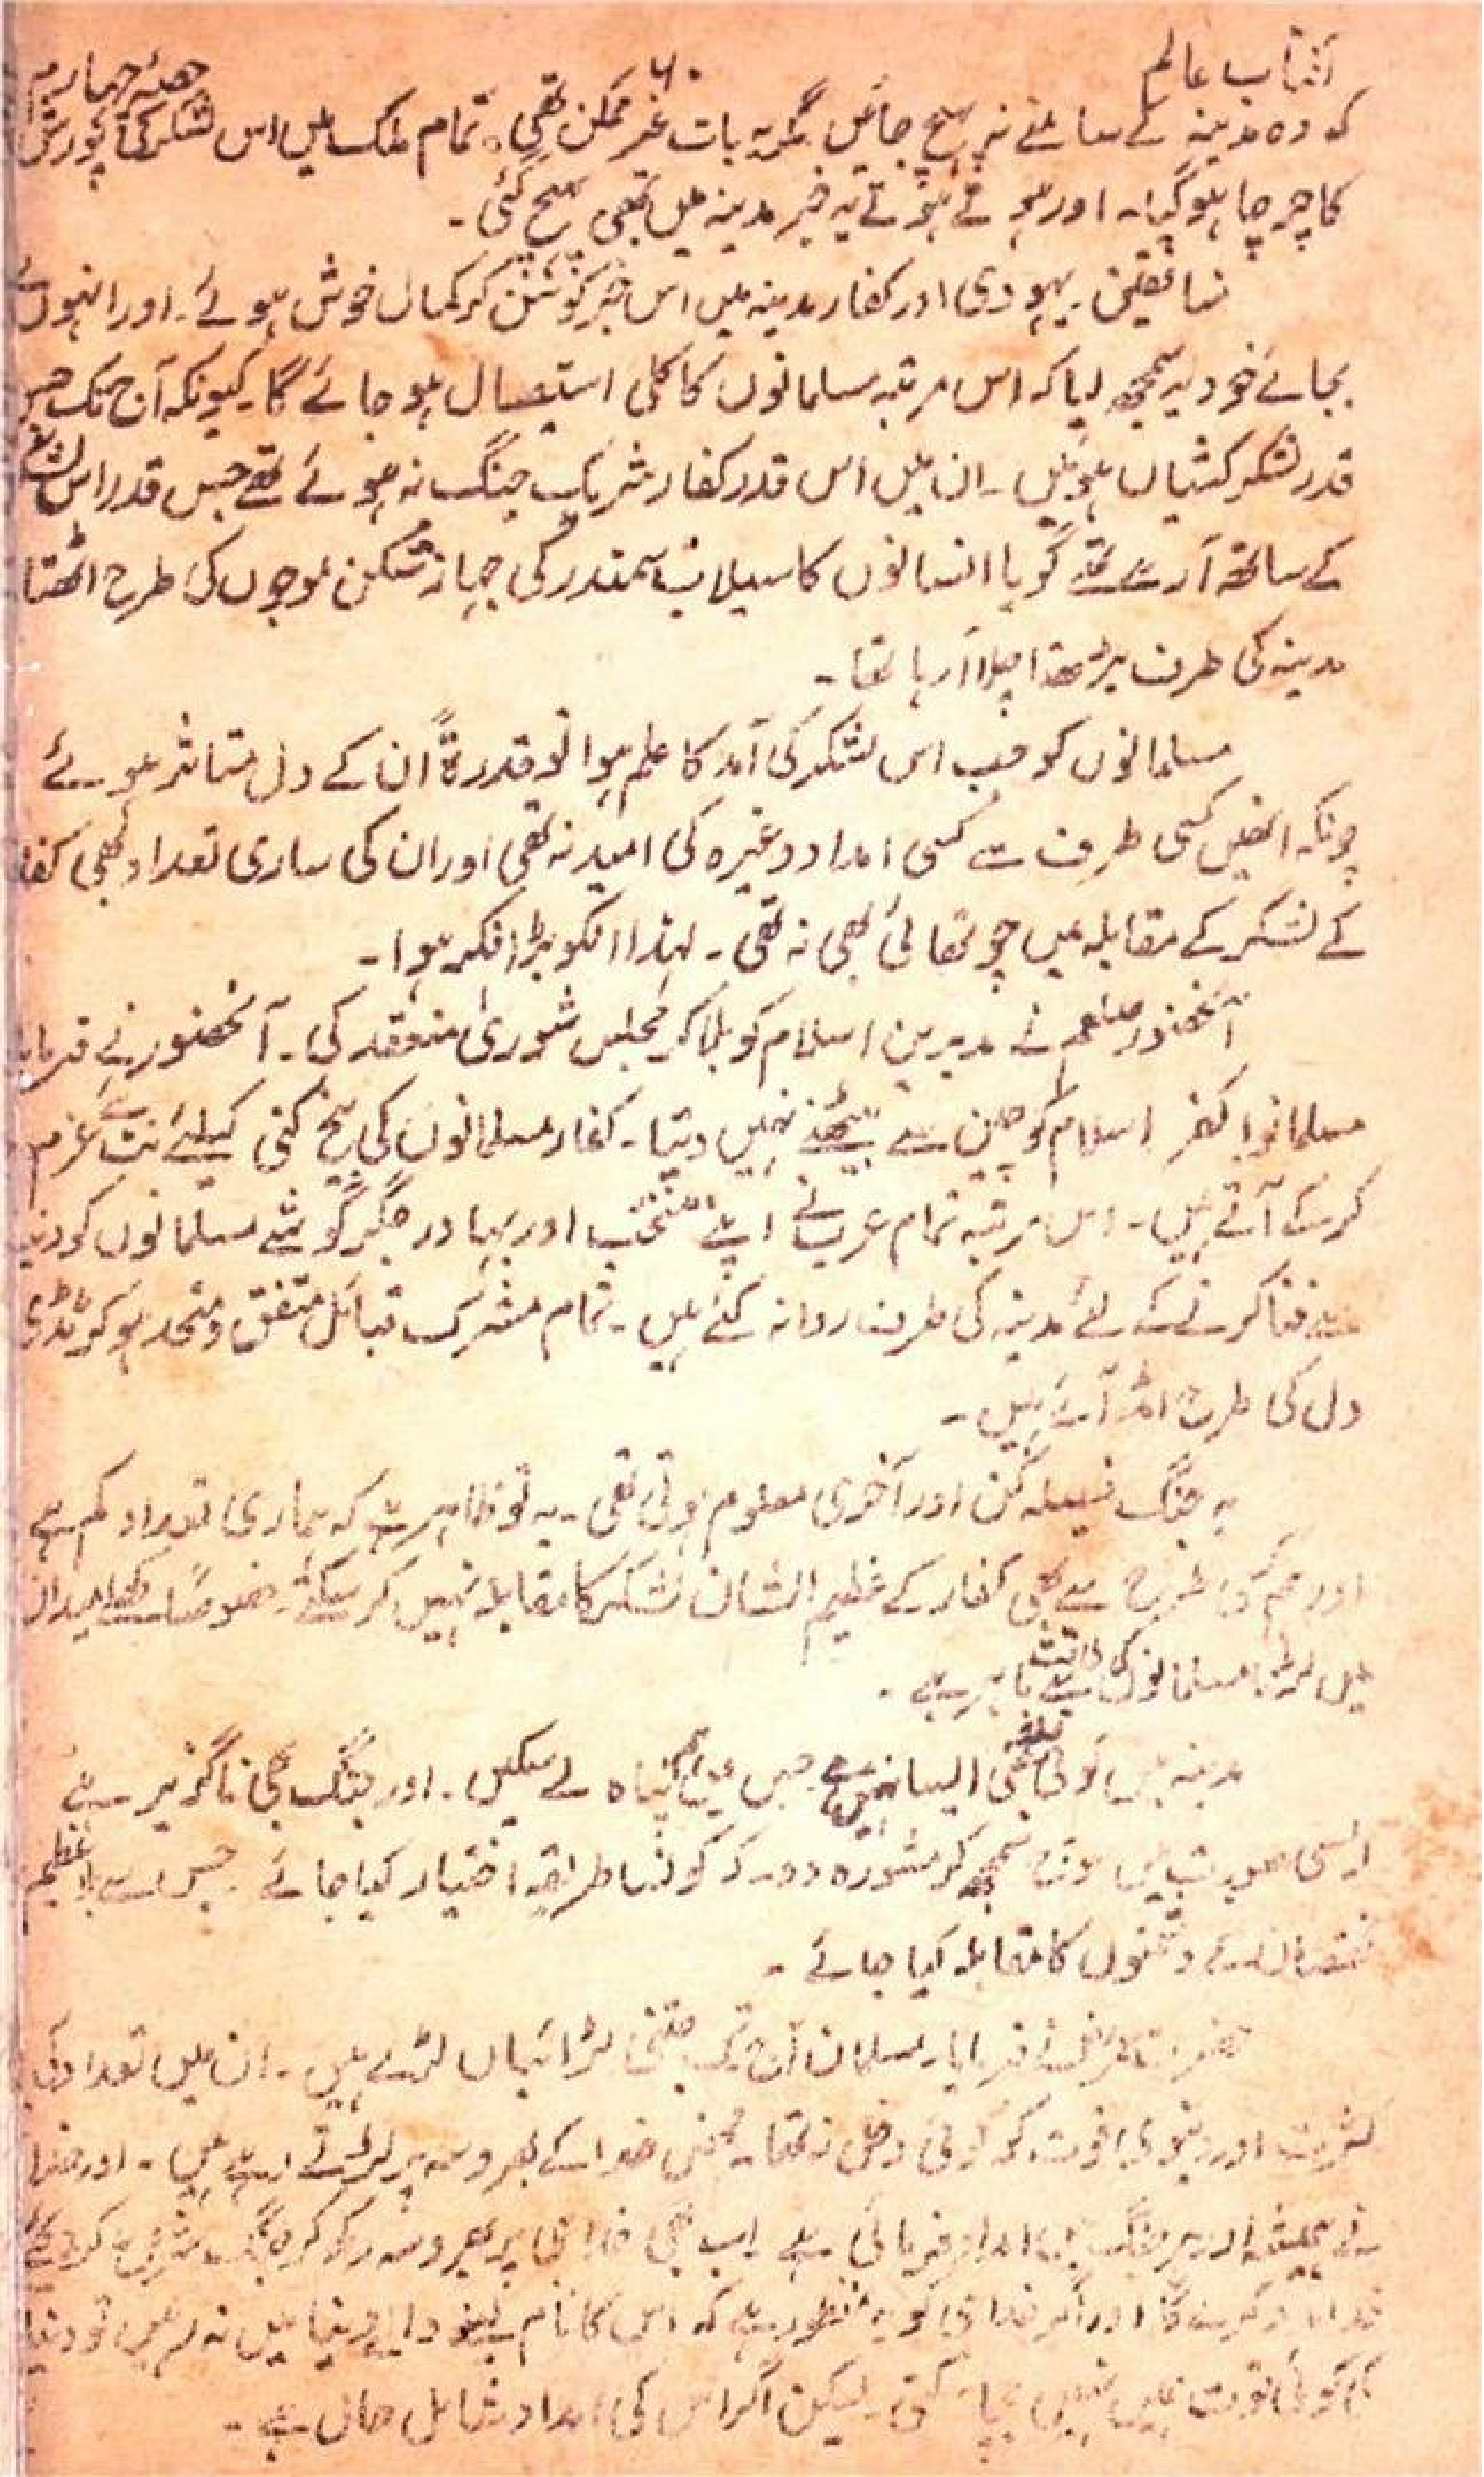 آفتاب عالم ۶۰ حصہ چہارم
کہ وہ مدینہ کے سامنے نہ پہنچ جائیں مگر یہ بات غیر ممکن تھی۔ تمام ملک میں اس لشکر کی یورش
کا چرچا ہو گیا۔ اور ہوتے ہوتے یہ خبر مدینہ میں بھی پہنچ گئی۔
منافقین۔ یہودی اور کفار مدینہ میں اس خبر کو سن کر کمال خوش ہوئے۔ اور انہوں نے
بجائے خود یہ سمجھ لیا کہ اس مرتبہ مسلمانوں کا کلی استیصال ہو جائے گا۔ کیونکہ آج تک جس
قدر لشکر کشیاں ہوئیں۔ ان میں اس قدر کفار شریک جنگ نہ ہوئے تھے جس قدر اس لشکر
کے ساتھ آ رہے تھے گویا انسانوں کا سیلاب سمندر کی جہاز شکن موجوں کی طرح اٹھتا
مدینہ کی طرف بڑھتا چلا آ رہا تھا۔
مسلمانوں کو جب اس لشکر کی آمد کا علم ہوا تو قدرۃً ان کے دل متاثر ہوئے
چونکہ انھیں کسی طرف سے کسی امداد وغیرہ کی امید نہ تھی اور ان کی ساری تعداد بھی کفار
کے لشکر کے مقابلہ میں چوتھائی بھی نہ تھی۔ لہذا انکو بڑا فکر ہوا۔
آنحضور صلعم نے مدبرین اسلام کو بلا کر مجلس شوریٰ منعقد کی۔ آنحضور نے فرمایا
مسلمانو! کفر اسلام کو چین سے بیٹھنے نہیں دیتا۔ کفار مسلمانوں کی بیخ کنی کیلئے نت نئے عزم
کرکے آتے ہیں۔ اس مرتبہ تمام عرب نے اپنے منتخب اور بہادر جگر گوشے مسلمانوں کو دنیا
سے فنا کرنے کے لئے مدینہ کی طرف روانہ کئے ہیں۔ تمام مشرک قبائل متفق و متحد ہو کر ٹڈی
دل کی طرح امڈ آئے ہیں۔
یہ جنگ فیصلہ کن اور آخری معلوم ہوتی تھی۔ یہ تو ظاہر ہے کہ ہماری تعداد کم ہے
اور ہم کسی طرح سے بھی کفار کے عظیم الشان لشکر کا مقابلہ نہیں کر سکتے۔ خصوصاً کھلے میدان
میں لڑنا مسلمانوں کی طاقت سے باہر ہے۔
مدینہ میں کوئی قلعہ بھی ایسا نہیں ہے جس میں ہم پناہ لے سکیں۔ اور جنگ بھی ناگزیر ہے
ایسی صورت میں سوچ سمجھ کر مشورہ دو۔ کہ کونسا طریقہ اختیار کیا جائے۔ جس سے بلا عظیم
نقصان کے دشمنوں کا مقابلہ کیا جائے۔
حضرت عمرؓ نے فرمایا۔ مسلمان آج تک جتنی لڑائیاں لڑے ہیں۔ ان میں تعداد کی
کثرت اور دنیوی قوت کو کوئی دخل نہ تھا۔ محض خدا کے بھروسہ پر لڑتے رہے ہیں۔ اور خدا
نے ہمیشہ اور ہر جنگ میں امداد فرمائی ہے۔ اب بھی خدا ہی پر بھروسہ رکھ کر جنگ شروع کر دیجئے
خدا امداد کرے گا اور اگر خدا ہی کو یہ منظور ہے کہ اس کا نام لینے والے دنیا میں نہ رہیں تو دنیا
کی کوئی قوت ہمیں نہیں بچا سکتی۔ لیکن اگر اس کی امداد شامل حال ہے۔